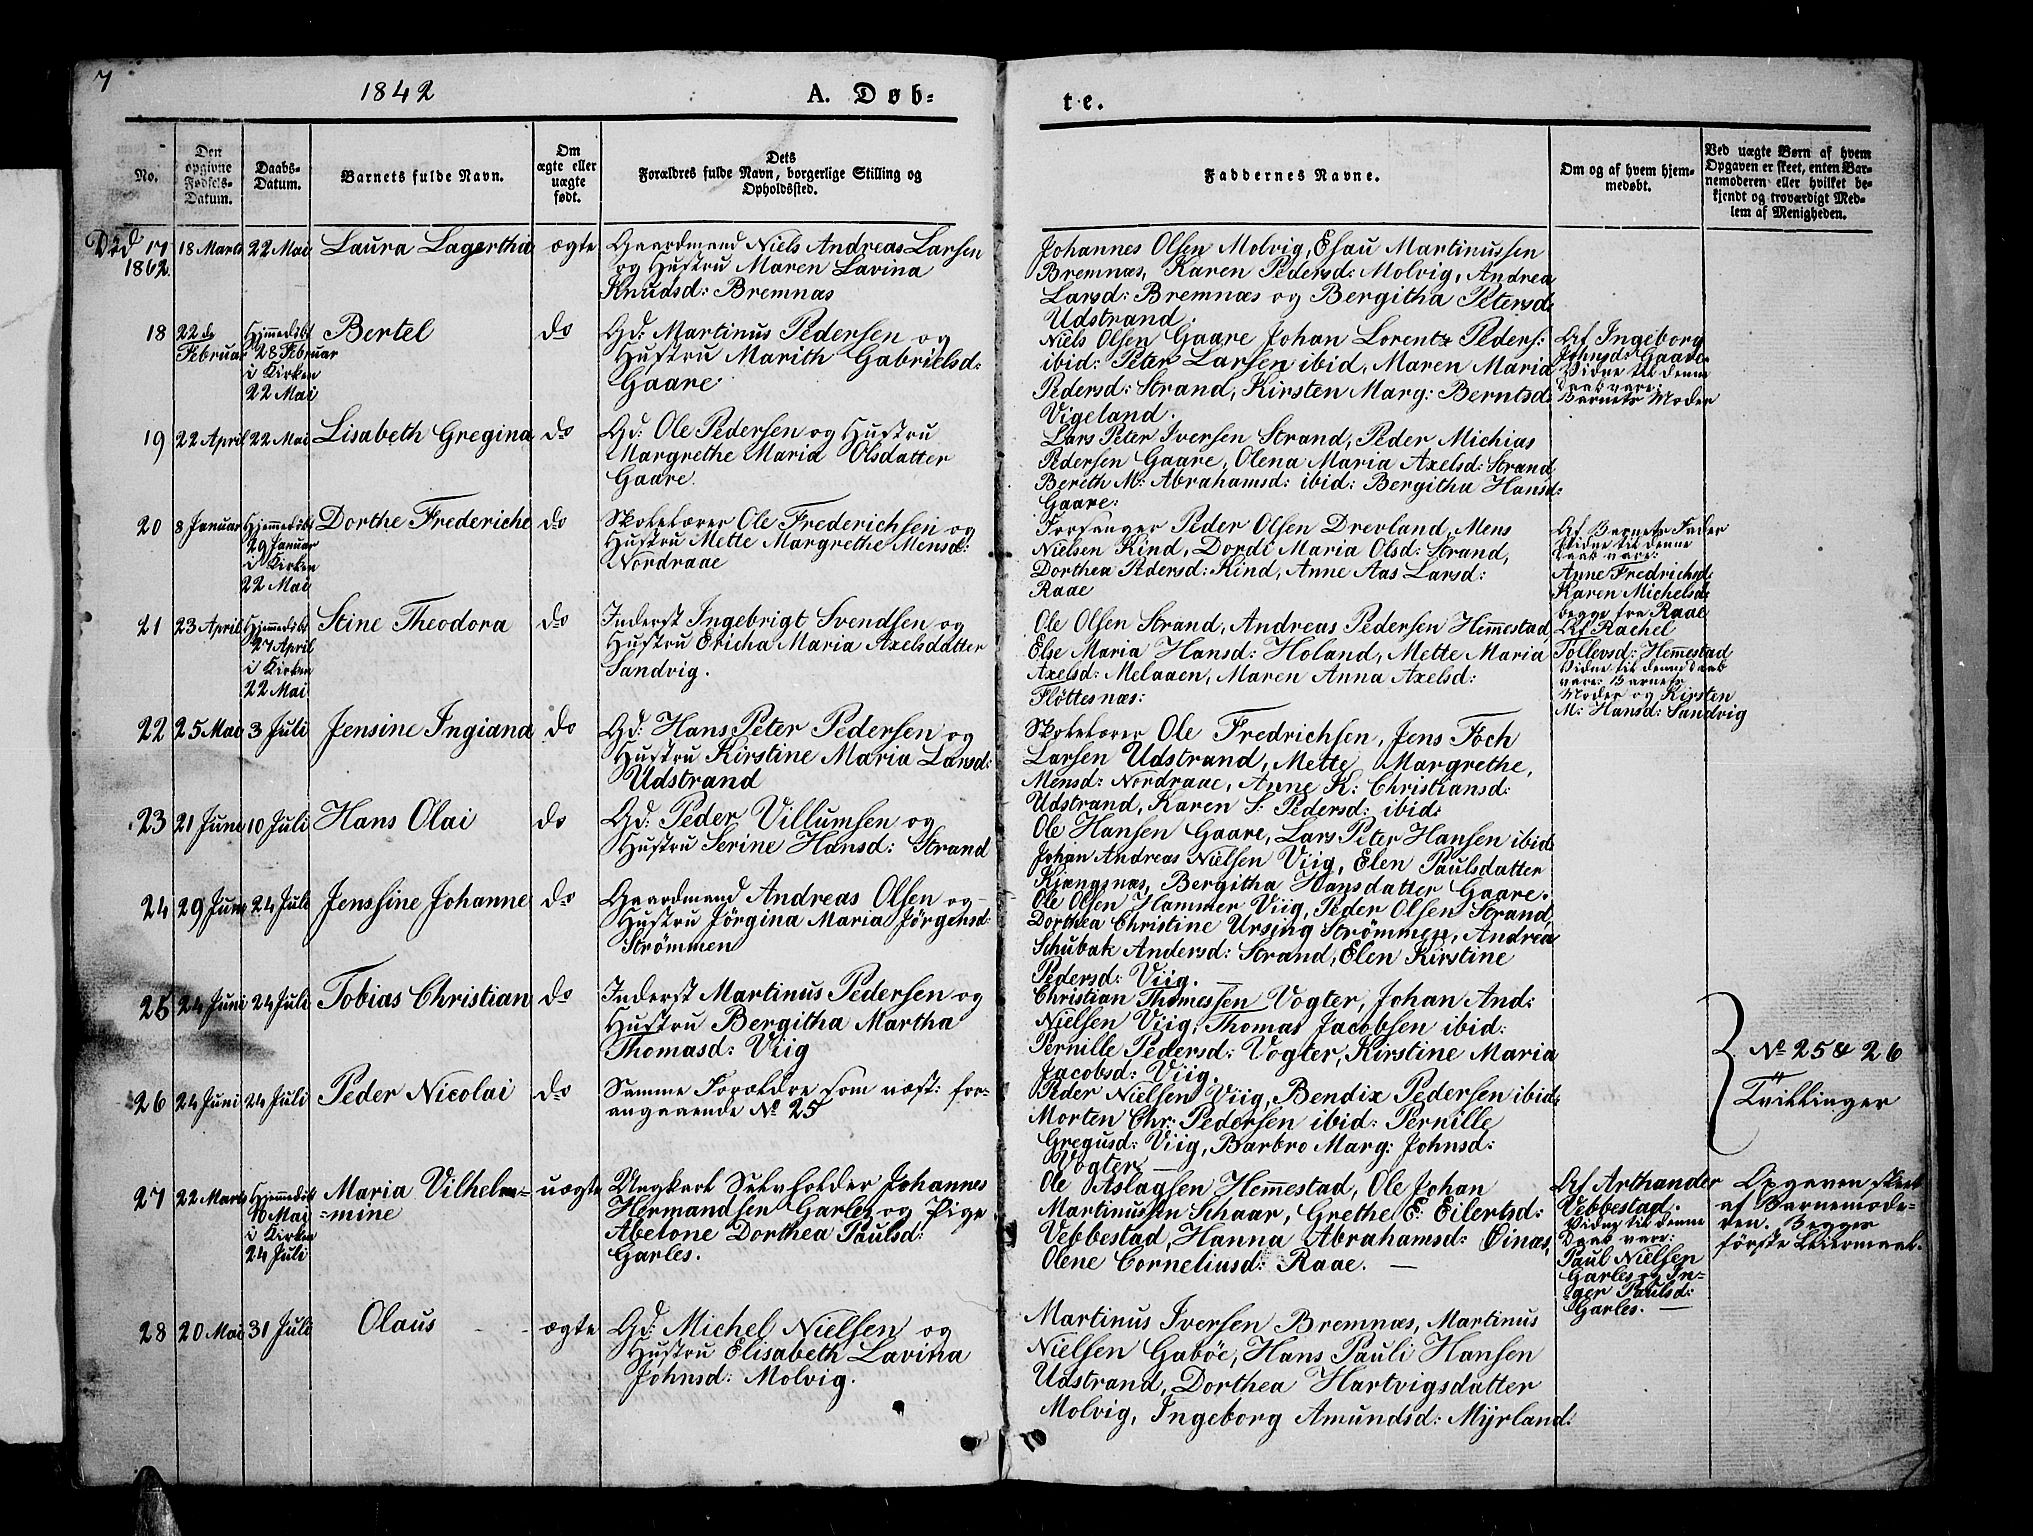 7
1842
A. Døb-
te.
No.
Den
opgivne
Fødsels-
Datum.
Daabs-
Datum.
Barnets fulde Navn.
Om
ægte eller
uægte
født.
Dets
Forældres fulde Navn, borgerlige Stilling og
Opholdssted.
Faddernes Navne.
Om og af hvem hjem-
medøbt.
Ved uægte Børn af hvem
Opgaven er skeet, enten Bar-
nemoderen eller hvilket be-
kjendt og troværdigt Med-
lem af Menigheden.
Død
1862
17
18 Marts
22 Mai
Laura Lagertha
ægte
Gaardmand Niels Andreas Larsen
og Hustru Maren Lavina
Knudsd: Bremnæs
Johannes Olsen Molvig, Esau Martinussen
Bremnæs, Karen Pedersd: Molvig, Andrea
Larsd: Bremnæs og Bergitha Petersd:
Udstrand.
18
22de
Februar
Hjemmedøbt
28 Februar
i Kirken
22 Mai
Bertel
do
Gd: Martinus Pedersen og
Hustru Marith Gabrielsd:
Gaare
Niels Olsen Gaare Johan Lorentz Peders:
ibid: Peter Larsen ibid, Maren Maria
Pedersd: Strand, Kirsten Marg: Berntsd:
Vigeland.
Af Ingeborg
Johnsd: Gaare
Vidne til denne
Daab vare:
Barnets Moder
19
22 April
22 Mai
Lisabeth Gregina
do
Gd: Ole Pedersen og Hustru
Margrethe Maria Olsdatter
Gaare.
Lars Peter Iversen Strand, Peder Michias
Pedersen Gaare, Olena Maria Axelsd: Strand
Bereth M: Abrahamsd: ibid: Bergitha Hansd:
Gaare:
20
8 Januar
Hjemmedøbt
29 Januar
i Kirken
22 Mai
Dorthe Frederiche
do
Skolelærer Ole Frederichsen og
Hustru Mette Margrethe Mensd:
Nordraae
Forsanger Peder Olsen Drevland, Mens
Nielsen Kind, Dordi Maria Olsd: Strand,
Dorthea Pedersd: Kind, Anne Aas Larsd:
Raae
Af Barnets Fader
Vidne til denne
Daab vare:
Anne Fredrichsd:
Karen Michelsd:
begge fra Raae
21
23 April
Hjemmedøbt
27 April
i Kirken
22 Mai
Stine Theodora
do
Inderst Ingebrigt Svendsen og
Hustru Ericha Maria Axelsdatter
Sandvig.
Ole Olsen Strand, Andreas Pedersen Hemmestad
Else Maria Hansd: Holand, Mette Maria
Axelsd: Melaaen, Maren Anna Axelsd:
Fløttesnæs:
Af Rachel
Tollevsd: Hemmestad
Vidne til denne Daab
vare: Barnets
Moder og Kirsten
M: Hansd: Sandvig
22
25 Mai
3 Juli
Jensine Ingiana
do
Gd: Hans Peter Pedersen og
Hustru Kirstine Maria Larsd:
Udstrand
Skolelærer Ole Fredrichsen, Jens Foch
Larsen Udstrand, Mette Margrethe,
Mensd: Nordraae, Anne K: Christiansd:
Udstrand, Karen S: Pedersd: ibid:
23
21 Juni
10 Juli
Hans Olai
do
Gd: Peder Villumsen og
Hustru Serine Hansd: Strand
Ole Hansen Gaare, Lars Peter Hansen ibid:
Johan Andreas Nielsen Viig, Elen Paulsdatter
Kjængsnæs, Bergitha Hansdatter Gaare.
24
29 Juni
24 Juli
Jenssine Johanne
do
Gaardmand Andreas Olsen og
Hustru Jørgina Maria Jørgensd:
Strømmen
Ole Olsen Hammer Viig, Peder Olsen Strand,
Dorthea Christine Ursing Strømmen, Andrea
Schubak Andersd: Strand, Elen Kirstine
Pedersd: Viig.
25
24 Juni
24 Juli
Tobias Christian
do
Inderst Martinus Pedersen og
Hustru Bergitha Martha
Thomasd: Viig
Christian Thomessen Vogter, Johan And:
Nielsen Viig, Thomas Jacobsen ibid:
Pernille Pedersd: Vogter, Kirstine Maria
Jacobsd: Viig.
No 25 & 26
Tvillinger
26
24 Juni
24 Juli
Peder Nicolai
do
Samme Forældre som næst: for-
angaaende No 25
Peder Nielsen Viig, Bendix Pedersen ibid:
Morten Chr: Pedersen ibid: Pernille
Gregusd: Viig, Barbro Marg: Johnsd:
Vogter —
27
22 Marts
Hjemmedøbt
10 Mai
i Kirken
24 Juli
Maria Vilhel-
=mine
uægte
Ungkarl Selvholder Johannes
Hermandsen Garles og Pige
Abelone Dorthea Paulsd:
Garles.
Ole Aslagsen Hemmestad, Ole Johan
Martinussen Schaar, Grethe E: Eilertsd:
Vebbestad, Hanna Abrahamsd: Øinæs,
Olene Corneliusd: Raae. —
Af Arthander
Vebbestad.
Vidne til denne
Daab vare:
Paul Nielsen
Garles og In-
=ger Paulsd:
Garles. —
Opgaven skeet
af Barnemode-
ren. Begges
første Leiermaal.
28
20 Mai
31 Juli
Olaus
ægte
Gd: Michel Nielsen og
Hustru Elisabeth Lavina
Johnsd: Molvig.
Martinus Iversen Bremnæs, Martinus
Nielsen Gabøe, Hans Pauli Hansen
Udstrand, Dorthea Hartvigsdatter
Molvig, Ingeborg Amundsd: Myrland: